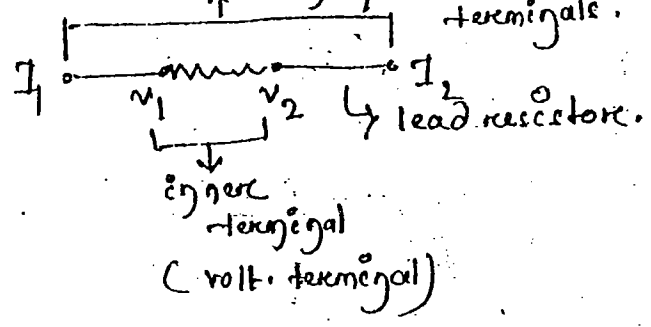 terminals.
I1 V1 V2 I2
↳ lead resistore.
inner
terminal
(volt. terminal)